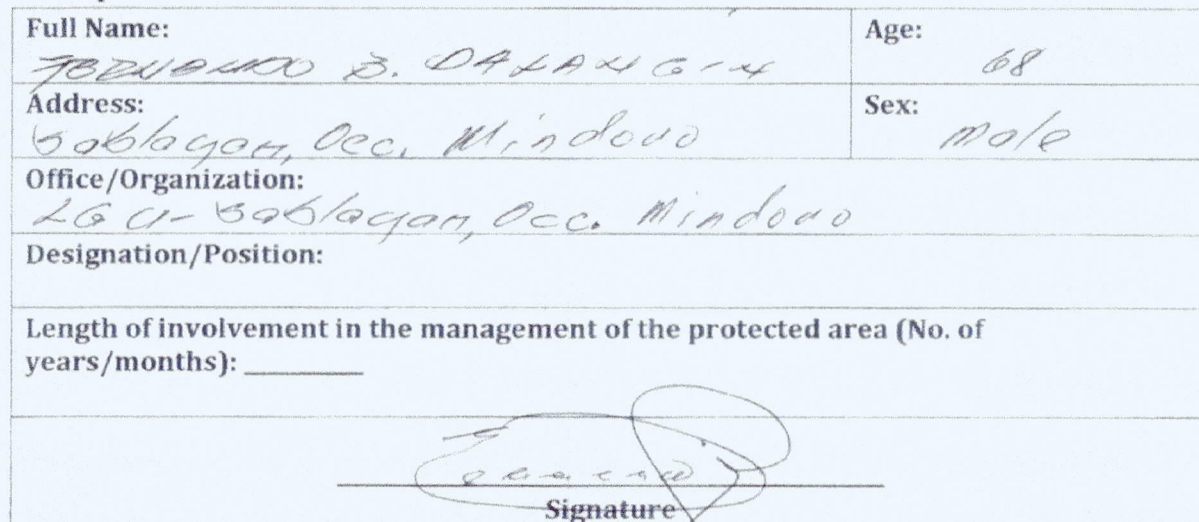 Full Name:
FERNANDO B. DALANG-IN
Age:
68
Address:
Sablayan, Occ. Mindoro
Sex:
Male
Office/Organization:
LGU- Sablayan, Occ. Mindoro
Designation/Position:
Length of involvement in the management of the protected area (No. of
years/months): ________
Signature